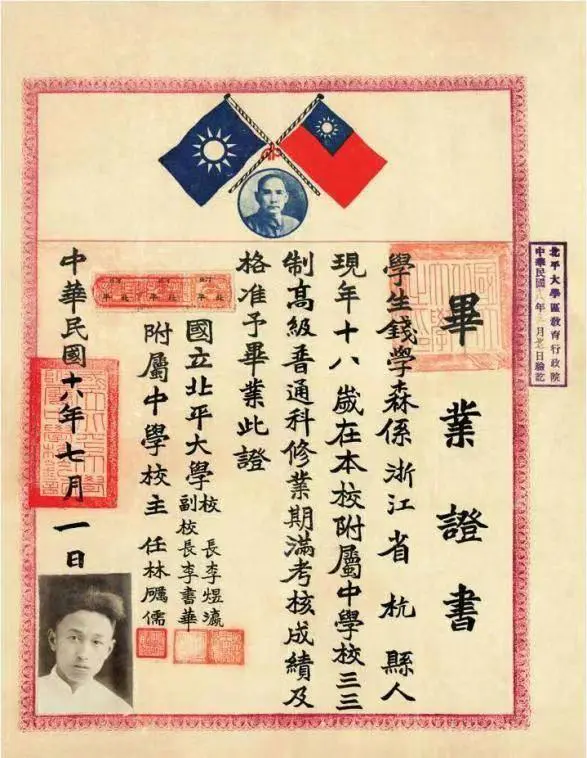 畢業證書
學生錢學森係浙江省杭縣人
現年十八歲在本校附屬中學校三三
制高級普通科修業期滿考核成績及
格准予畢業此證
國立北平大學校長李煜瀛
副校長李書華
附屬中學校主任林礪儒
中華民國十八年七月一日
北平大學區教育行政院